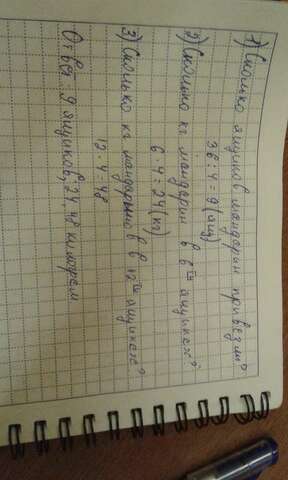 1) Сколько ящиков мандарин привезли?
36 : 4 = 9 (ящ)
2) Сколько кг мандарин в 6ти ящиках?
6 · 4 = 24 (кг)
3) Сколько кг мандарин в 12ти ящиках?
12 · 4 = 48
Ответ: 9 ящиков, 24, 48 килограм